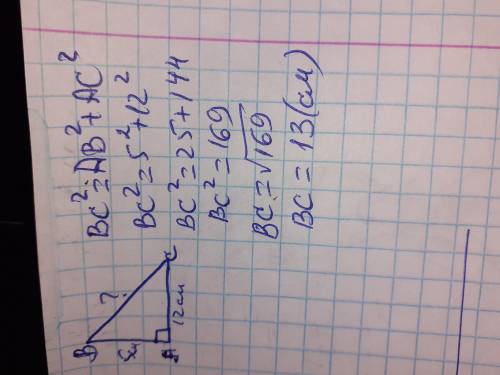 B
?
5см
A
12см
C
BC²=AB²+AC²
BC²=5²+12²
BC²=25+144
BC²=169
BC=√169
BC=13(см)